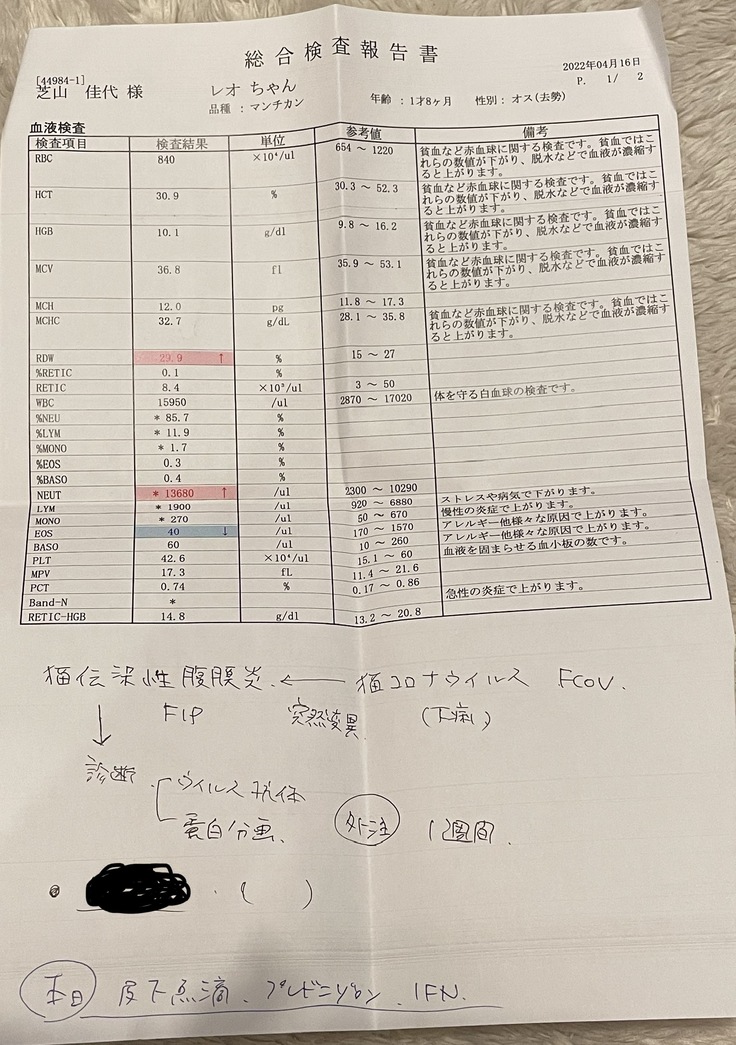 総合検査報告書
2022年04月16日
P. 1/ 2
[44984-1]
芝山 佳代 様 レオ ちゃん
品種 : マンチカン 年齢 : 1才8ヶ月 性別 : オス(去勢)
血液検査
検査項目 検査結果 単位 参考値 備考
RBC 840 ×10⁴/ul 654 ～ 1220 貧血など赤血球に関する検査です。貧血ではこ
れらの数値が下がり、脱水などで血液が濃縮す
ると上がります。
HCT 30.9 % 30.3 ～ 52.3 貧血など赤血球に関する検査です。貧血ではこ
れらの数値が下がり、脱水などで血液が濃縮す
ると上がります。
HGB 10.1 g/dl 9.8 ～ 16.2 貧血など赤血球に関する検査です。貧血ではこ
れらの数値が下がり、脱水などで血液が濃縮す
ると上がります。
MCV 36.8 fl 35.9 ～ 53.1 貧血など赤血球に関する検査です。貧血ではこ
れらの数値が下がり、脱水などで血液が濃縮す
ると上がります。
MCH 12.0 pg 11.8 ～ 17.3
MCHC 32.7 g/dL 28.1 ～ 35.8 貧血など赤血球に関する検査です。貧血ではこ
れらの数値が下がり、脱水などで血液が濃縮す
ると上がります。
RDW 29.9 ↑ % 15 ～ 27
%RETIC 0.1 %
RETIC 8.4 ×10³/ul 3 ～ 50
WBC 15950 /ul 2870 ～ 17020 体を守る白血球の検査です。
%NEU * 85.7 %
%LYM * 11.9 %
%MONO * 1.7 %
%EOS 0.3 %
%BASO 0.4 %
NEUT * 13680 ↑ /ul 2300 ～ 10290
LYM * 1900 /ul 920 ～ 6880 ストレスや病気で下がります。
MONO * 270 /ul 50 ～ 670 慢性の炎症で上がります。
EOS 40 ↓ /ul 170 ～ 1570 アレルギー他様々な原因で上がります。
BASO 60 /ul 10 ～ 260 アレルギー他様々な原因で上がります。
PLT 42.6 ×10⁴/ul 15.1 ～ 60 血液を固まらせる血小板の数です。
MPV 17.3 fL 11.4 ～ 21.6
PCT 0.74 % 0.17 ～ 0.86
Band-N * 急性の炎症で上がります。
RETIC-HGB 14.8 g/dl 13.2 ～ 20.8
猫伝染性腹膜炎 ← 猫コロナウイルス FCoV.
FIP 突然変異 (下痢)
↓
診断 ウイルス抗体
蛋白分画 外注 1週間.
( )
本日 皮下点滴. プレドニゾロン. IFN.